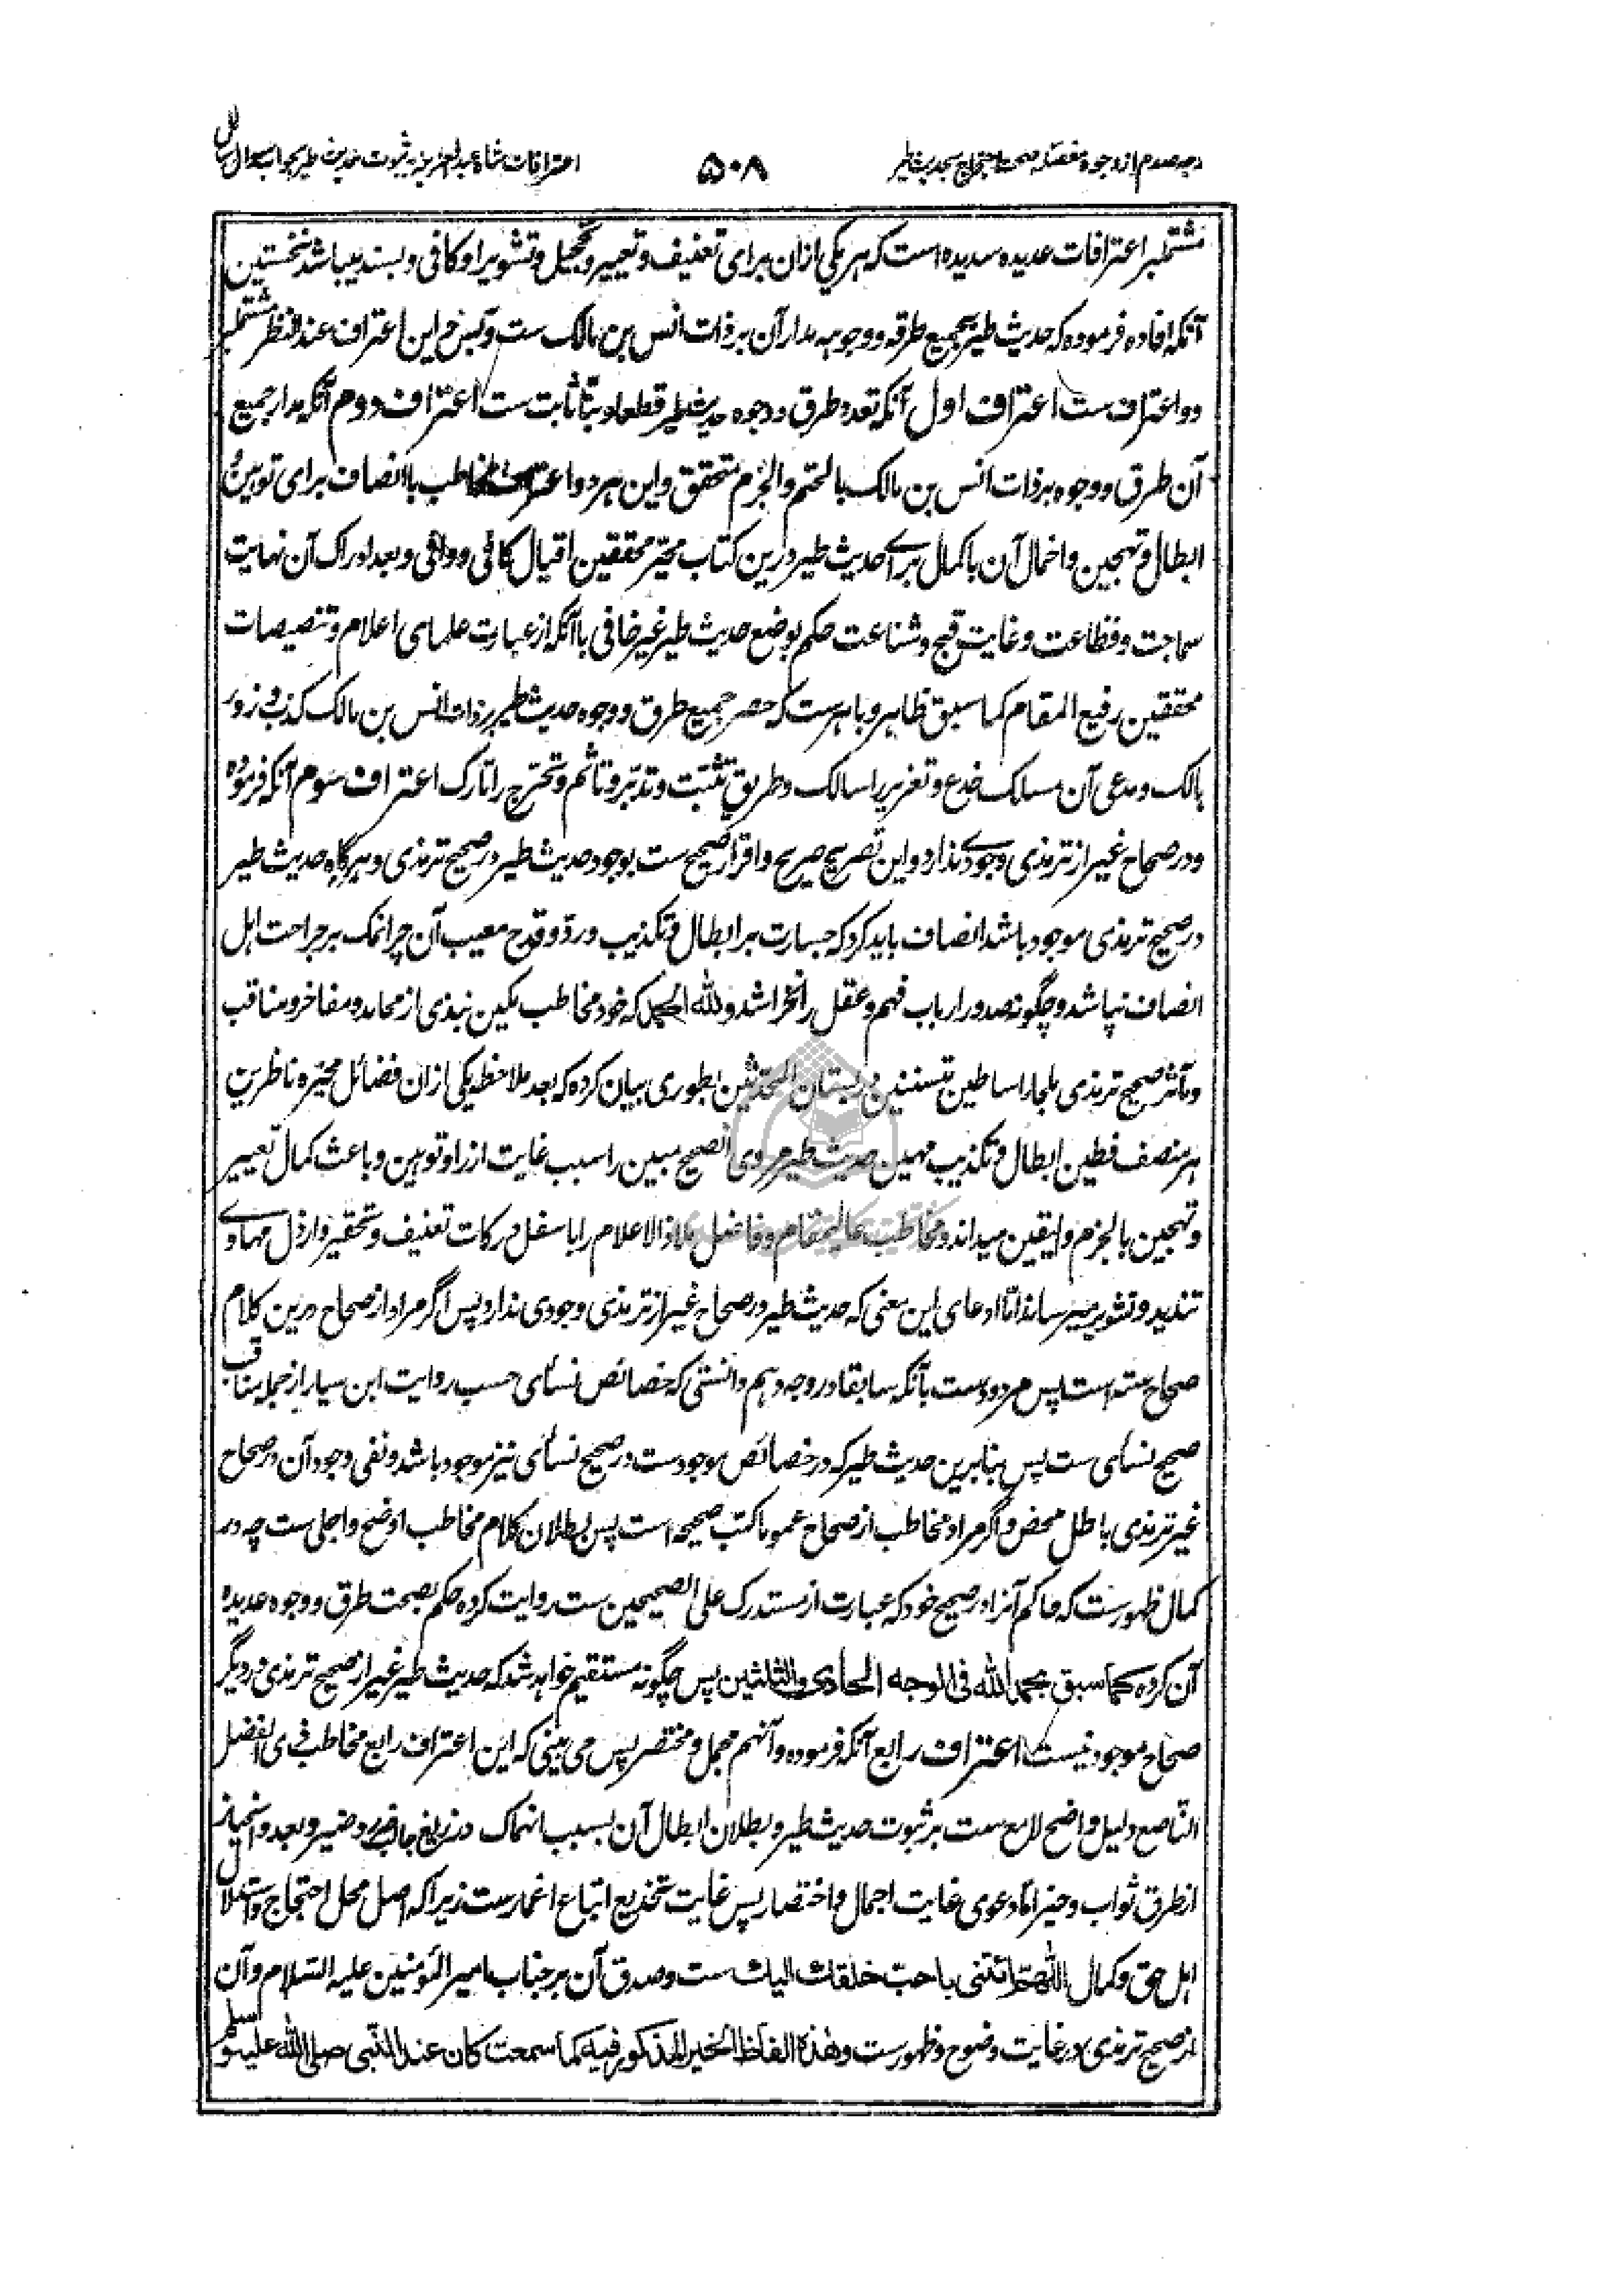 وجه صدم از وجوه مفصله صحت احتجاج بحدیث طیر
۵۰۸
اعترافات شاه عبدالعزیز به ثبوت حدیث طیر بجواب سوال سائل
مشتملبر اعترافات عدیده سدیده است که هر یکی ازان برای تعنیف و تعییر و تخجیل و تشویر او کافی و بسند میباشد نخستین
آنکه افاده فرموده که حدیث طیر بجمیع طرقه و وجوبه مدار آن بر ذات انس بن مالک ست و این اعتراف عند النظر مشتملبر
دو اعتراف ست اعتراف اول آنکه تعدد طرق و وجوه حدیث طیر قطعا و بتّا ثابت ست اعتراف دوم آنکه مدار جمیع
آن طرق و وجوه بر ذات انس بن مالک بالحتم و الجزم متحقق و این هر دو اعتراف مخاطب با انصاف برای توهین و
ابطال و تهجین و اخمال آن با کمال برای حدیث طیر درین کتاب محیّر محققین اقیال کافی و وافی و بعد ادراک آن نهایت
سماجت و فظاعت و غایت قبح و شناعت حکم بوضع حدیث طیر غیر خافی با آنکه از عبارت علمای اعلام و تنصیصات
محققین رفیع المقام کما سبق ظاهر و باهرست که حصر جمیع طرق و وجوه حدیث طیر بر ذات انس بن مالک کذب و زور
هالک و مدعی آن مسالک خدع و تغریر را سالک و طریق تثبّت و تدبّر و تأثم و تحرّج را تارک اعتراف سوم آنکه فرموده
و در صحاح غیر از ترمذی وجودی ندارد و این تصریح صریح و اقرار صحیح ست بوجود حدیث طیر در صحیح ترمذی و هرگاه حدیث طیر
در صحیح ترمذی موجود باشد انصاف باید کرد که جسارت بر ابطال و تکذیب و ردّ و قدح معیب آن چرا نمک بر جراحت اهل
انصاف نپاشد و چگونه صدور ارباب فهم و عقل را نخراشد و لله الحمد که خود مخاطب مکین نبذی از محامد و مفاخر و مناقب
و مآثر صحیح ترمذی ملجأ اساطین متسننین در بستان المحدثین بطوری بیان کرده که بعد ملاحظه یکی ازان فضائل محیّره ناظرین
هر منصف فطین ابطال و تکذیب مهین حدیث طیر مروی الصحیح مبین را سبب غایت ازراء و توهین و باعث کمال تعییر
و تهجین بالجزم و الیقین میداند و مخاطب عالیمقام و فاضل ملاذ الاعلام را باسفل درکات تعنیف و تحقیر و ارذل مهاوی
تندید و تشویر میرساند امّا ادعای این معنی که حدیث طیر در صحاح غیر از ترمذی وجودی ندارد پس اگر مراد از صحاح درین کلام
صحاح سته است پس مردودست بآنکه سابقا در وجه دهم دانستی که خصائص نسائی حسب روایت ابن سیار از جمله مناقب
صحیح نسائی ست پس بنابرین حدیث طیر که در خصائص موجودست در صحیح نسائی نیز موجود باشد و نفی وجود آن در صحاح
غیر ترمذی باطل محض و اگر مراد مخاطب از صحاح عموما کتب صحیحه است پس بطلان کلام مخاطب اوضح و اجلی ست چه در
کمال ظهورست که حاکم آنرا در صحیح خود که عبارت از مستدرک علی الصحیحین ست روایت کرده حکم بصحت طرق و وجوه عدیده
آن کرده کما سبق بحمد الله فی الوجه الحادی و الثلثین پس چگونه مستقیم خواهد شد که حدیث طیر غیر از صحیح ترمذی در دیگر
صحاح موجود نیست اعتراف رابع آنکه فرموده و آنهم مجمل و مختصر پس می بینی که این اعتراف رابع مخاطب ذی الفضل
الناصع دلیل واضح لامع ست بر ثبوت حدیث طیر و بطلان ابطال آن بسبب انهماک در زیغ و ضیر و بعد و انحیاز
از طرق ثواب و خیر امّا دعوی غایت اجمال و اختصار پس غایت تخدیع اتباع اغمارست زیرا که اصل محل احتجاج و استدلال
اهل حق و کمال اللهمّ ائتنی باحبّ خلقك الیك ست و صدق آن بر جناب امیر المؤمنین علیه السّلام و آن
از صحیح ترمذی در غایت وضوح و ظهورست و هذه الفاظ الخبر المذکور فیه کما سمعت کان عند النّبی صلی الله علیه و سلم